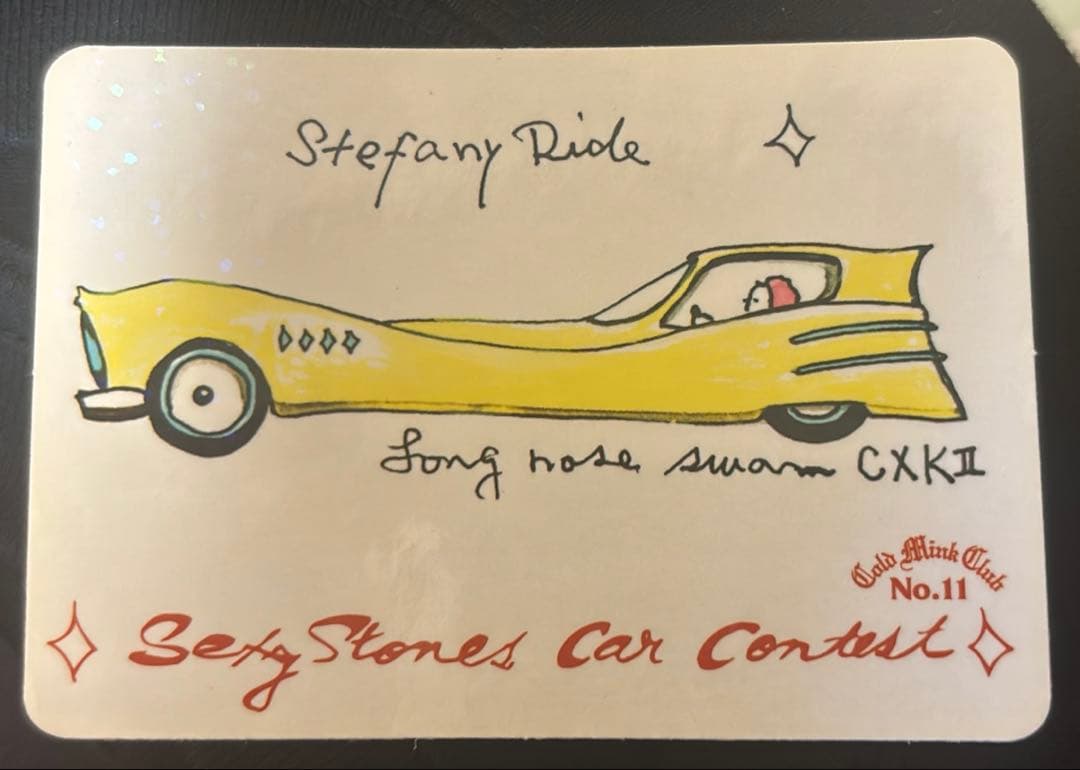 Stefany Ride
Long nose swam CXKII
Cold Mink Club
No.11
Sexy Stones Car Contest